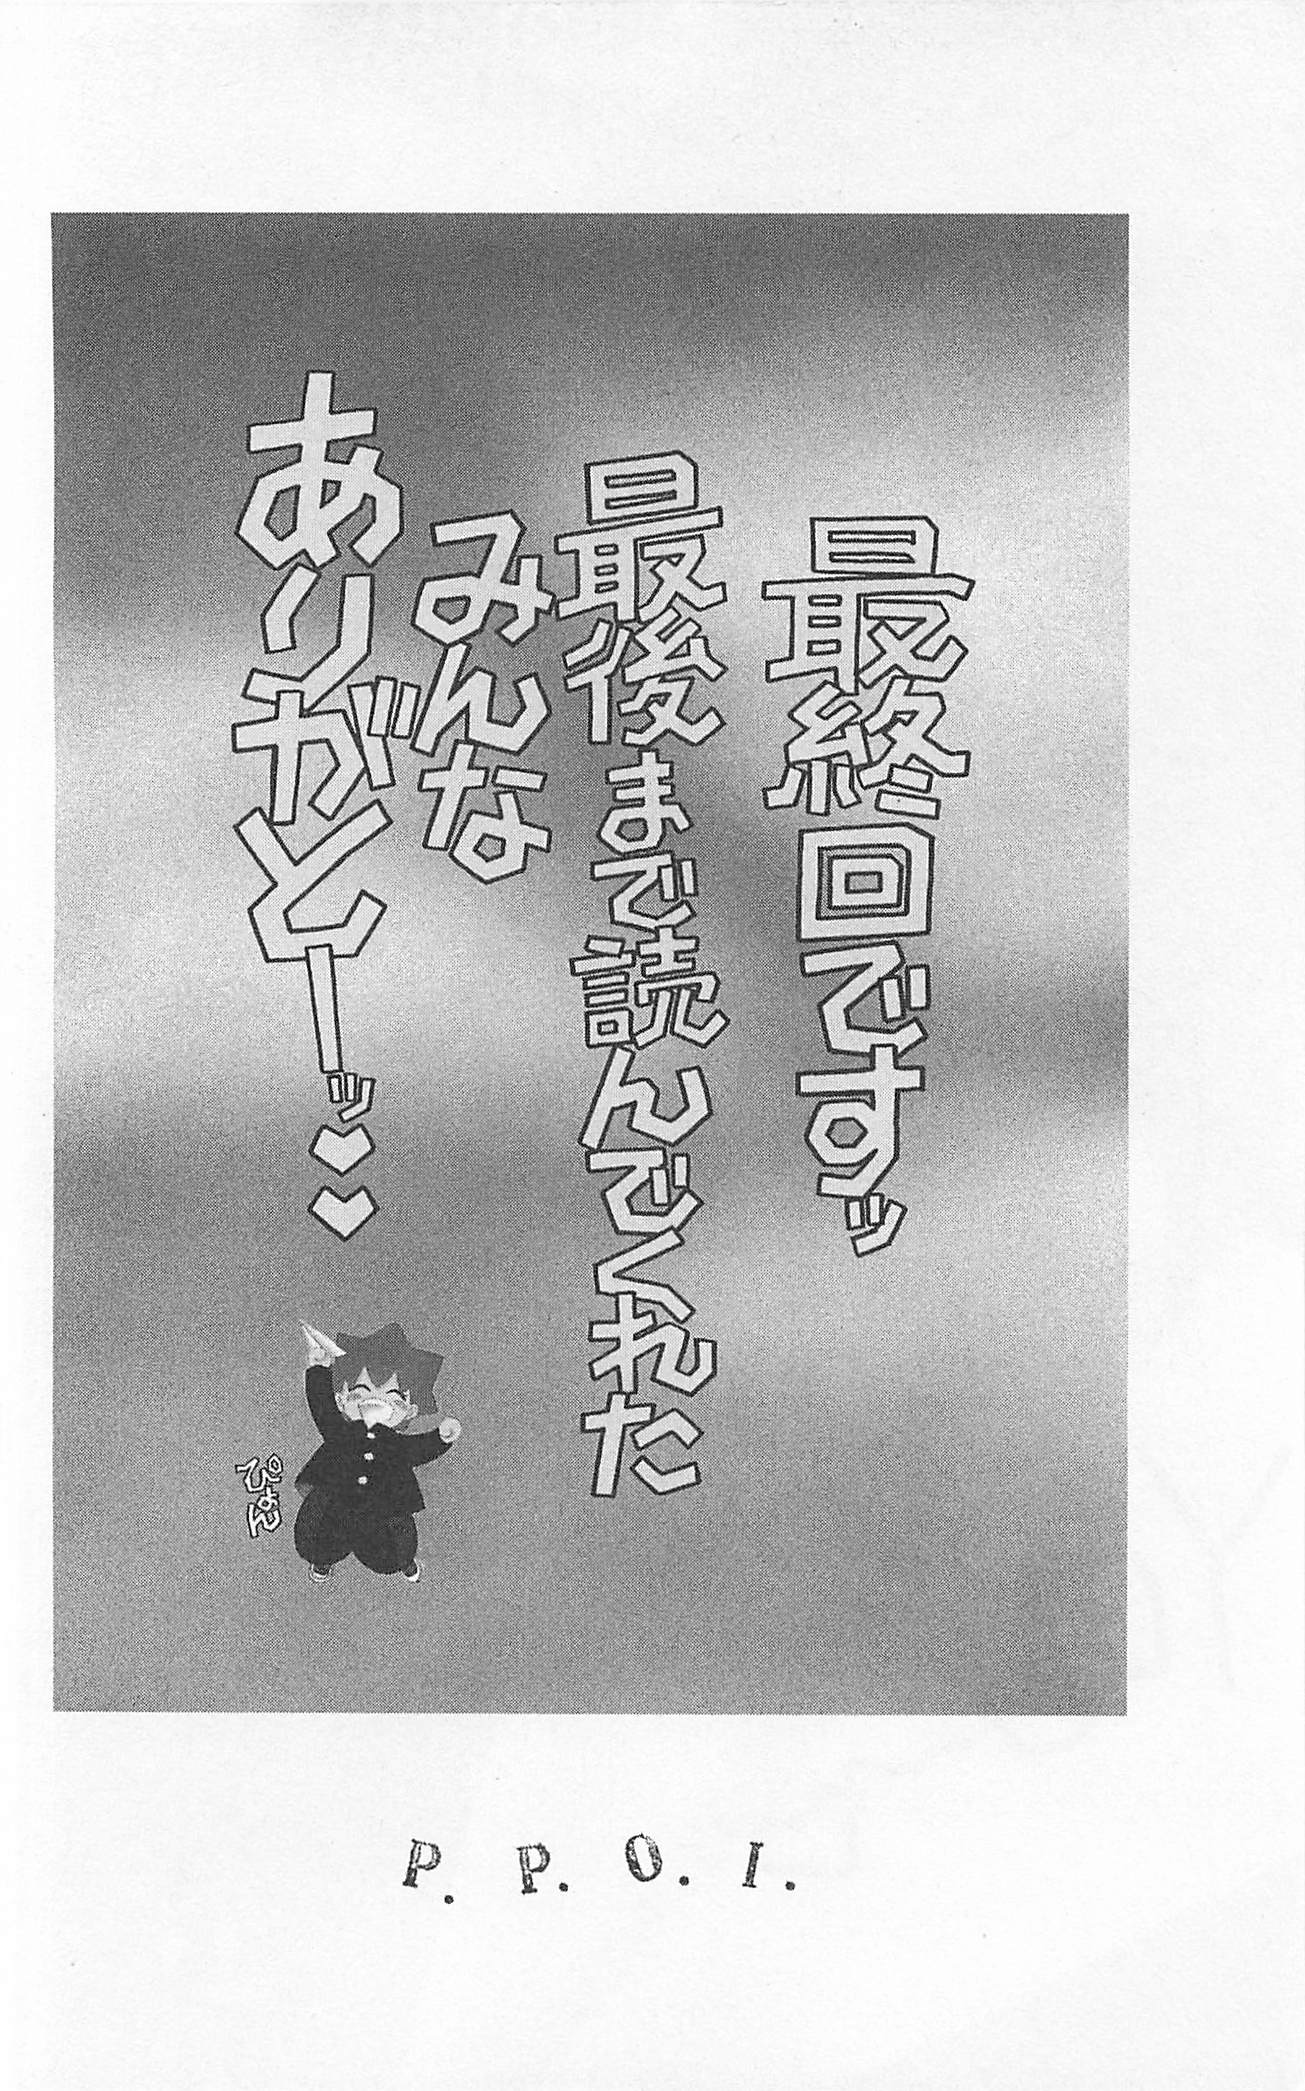 最終回ですッ
最後まで読んでくれた
みんな
ありがとーッ♥♥
ぴょん
P. P. O. I.